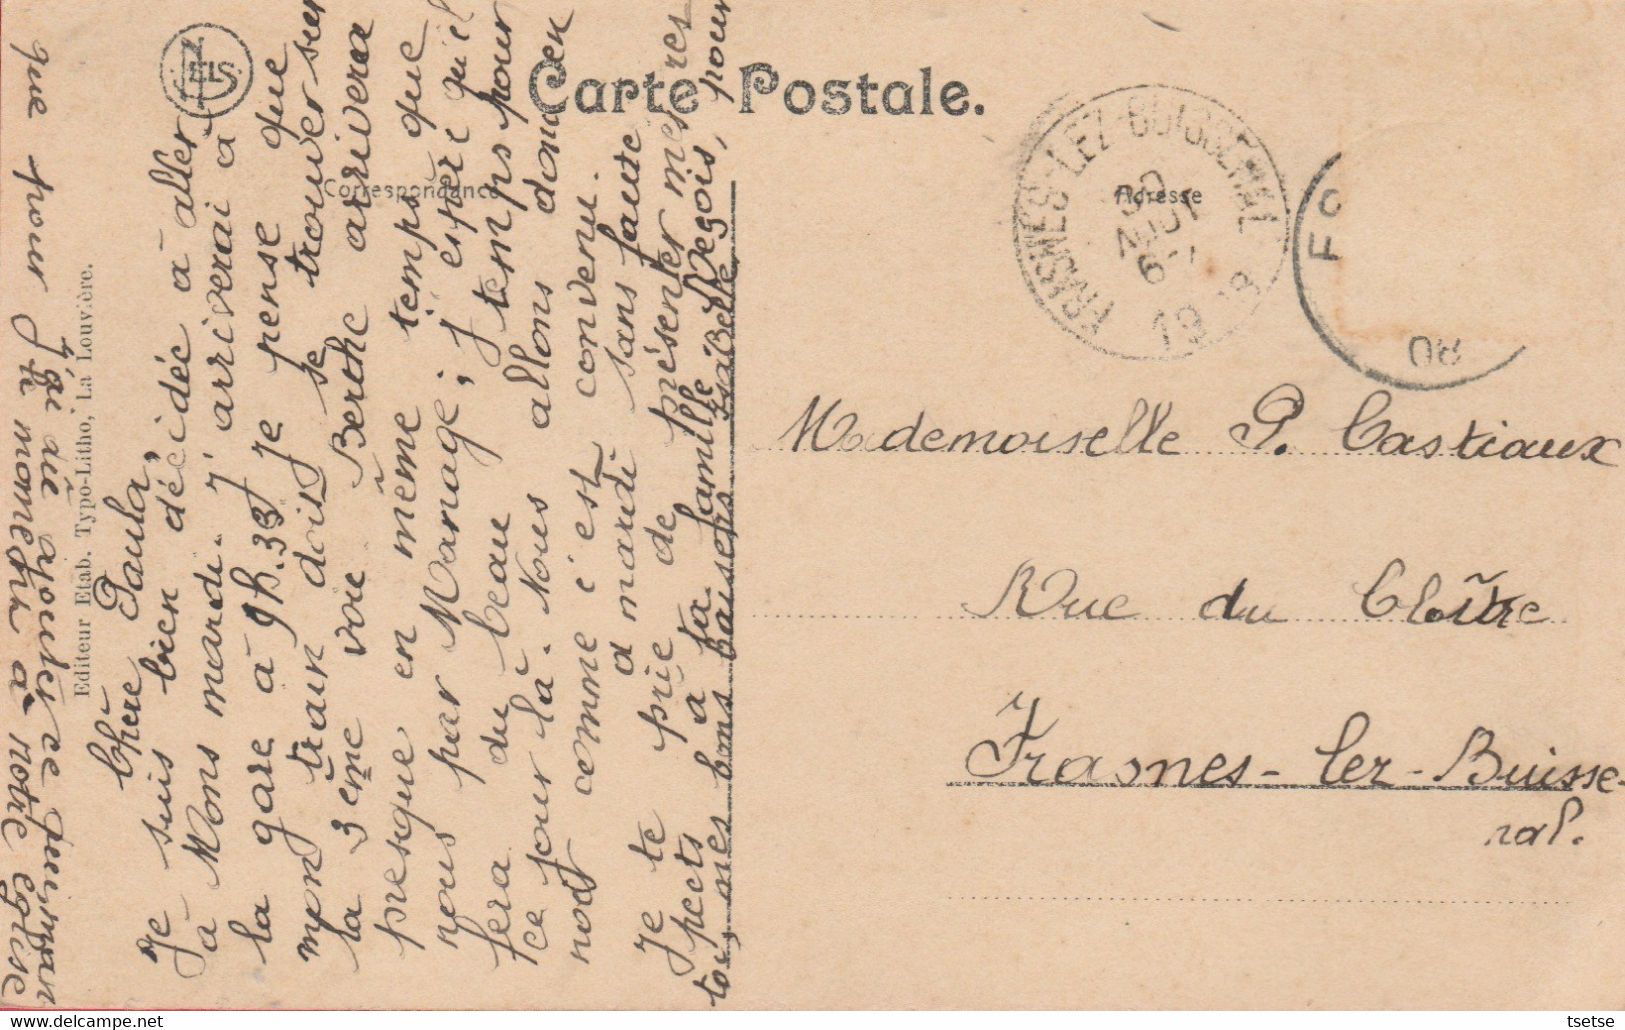 Carte Postale.
Correspondance
Adresse
Editeur Etab. Typo-Litho, La Louvière.
ELS
FRASNES-LEZ-BUISSENAL
30
AOUT
6-7
1908
08
Mademoiselle P. Castiaux
Rue du Cloître
Frasnes-lez-Buisse-
nal.
Chère Paula,
Je suis bien décidée à aller
à Mons mardi. J'arriverai à
la gare à 9h.33 Je pense que
mon train doit se trouver sur
la 3eme voie Berthe arrivera
presque en même temps que
nous par Manage; j'espère qu'il
fera du beau temps pour
ce jour là. Nous allons donc en
nous comme c'est convenu.
à mardi sans faute
Je te prie de présenter mes res
pects à ta famille
toi, ores bons baisers Isabelle Degois, pour
J'ai dû ajouter ce
que pour le moment à notre église